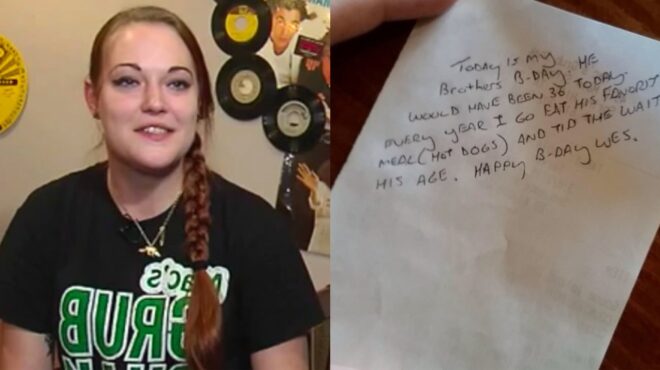 Mac's
GRUB
TODAY IS MY
BROTHERS B-DAY. HE
WOULD HAVE BEEN 36 TODAY.
EVERY YEAR I GO EAT HIS FAVORITE
MEAL (HOT DOGS) AND TIP THE WAIT
HIS AGE. HAPPY B-DAY WES.